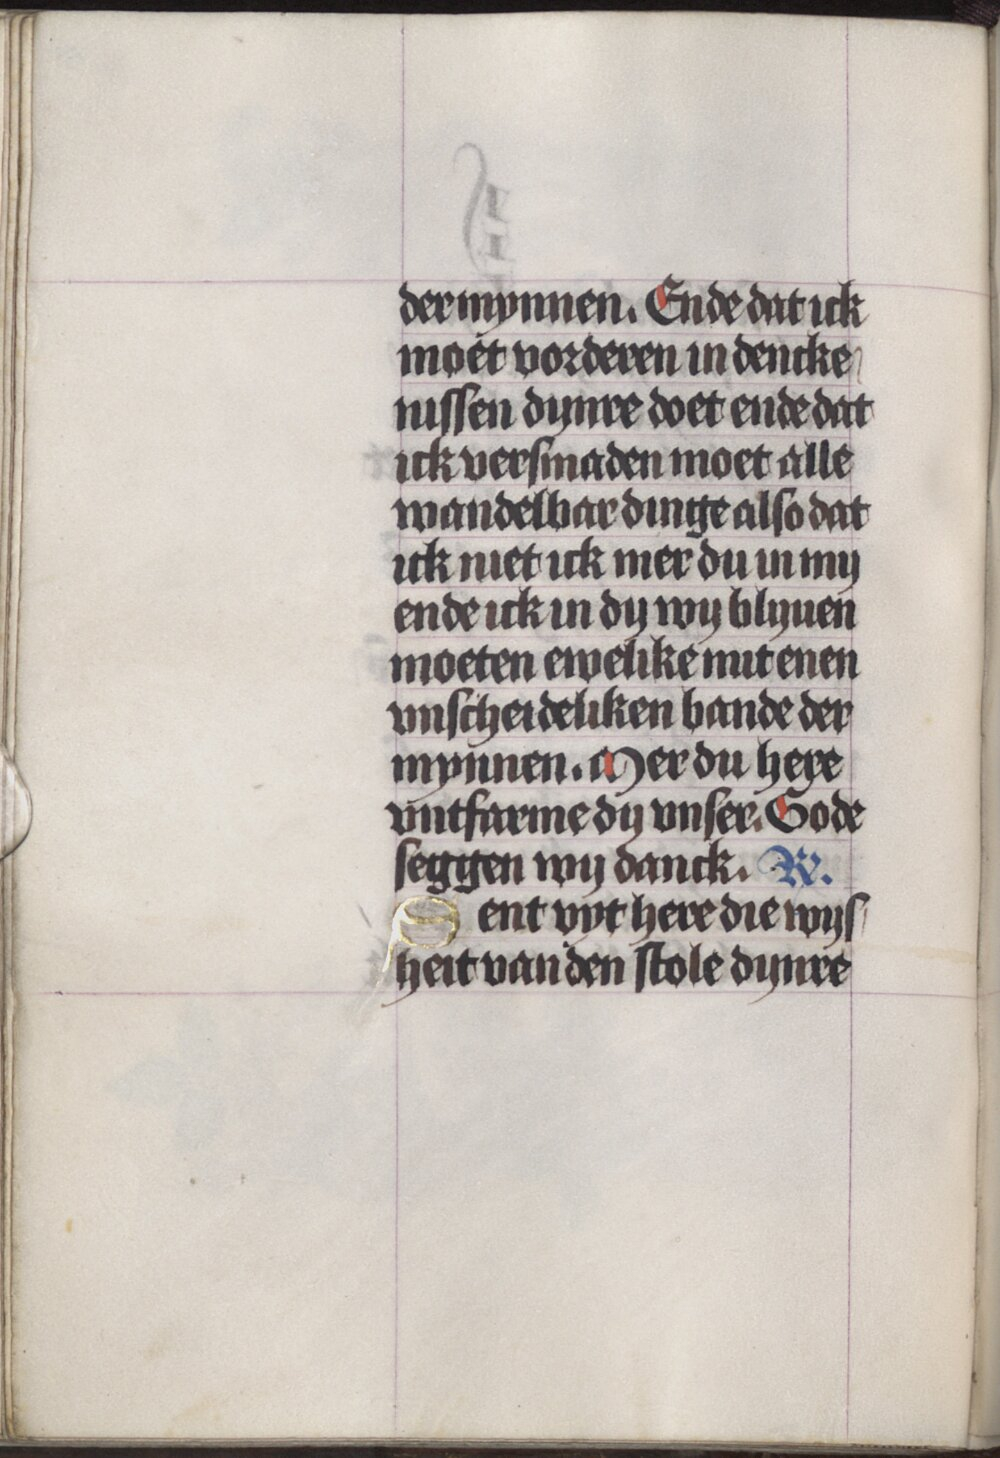 der mynnen. Ende dat ick
moet vorderen in dencke
nissen dynre doet ende dat
ick versmaden moet alle
wandelbar dinge also dat
ick niet ick mer du in my
ende ick in dy wy blyuen
moeten ewelike mit enen
vnscheideliken bande der
mynnen. Mer du here
vntfarme dy vnser. Gode
seggen wy danck. R.
Sent vyt here die wijs
heit van den stole dynre